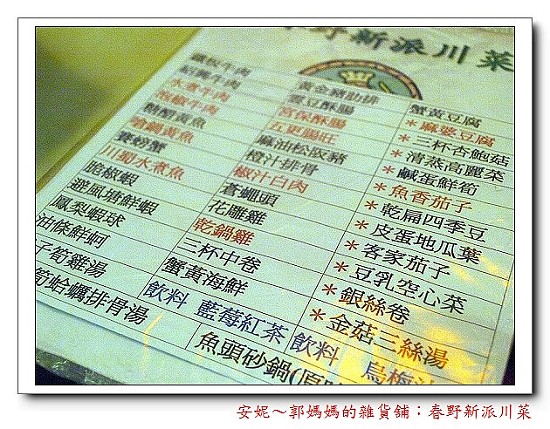 春野新派川菜
鐵板牛肉 黃金豬肋排 蟹黃豆腐
紹興牛肉 雲豆酥腸 *麻婆豆腐
水煮牛肉 宮保酥腸 *三杯杏鮑菇
五更腸旺 *清蒸高麗菜
糖醋黃魚 麻油松阪豬 *鹹蛋鮮筍
嗆鍋黃魚 橙汁排骨 *魚香茄子
賽螃蟹 椒汁白肉 *乾扁四季豆
川蜀水煮魚 蒼蠅頭 *皮蛋地瓜葉
脆椒蝦 花雕雞 *客家茄子
避風塘鮮蝦 乾鍋雞 *豆乳空心菜
鳳梨蝦球 三杯中卷 *銀絲卷
油條鮮蚵 蟹黃海鮮 *金菇三絲湯
子筍雞湯 飲料 藍莓紅茶 飲料 烏梅
筍蛤蠣排骨湯 魚頭砂鍋(原
安妮～郭媽媽的雜貨舖：春野新派川菜